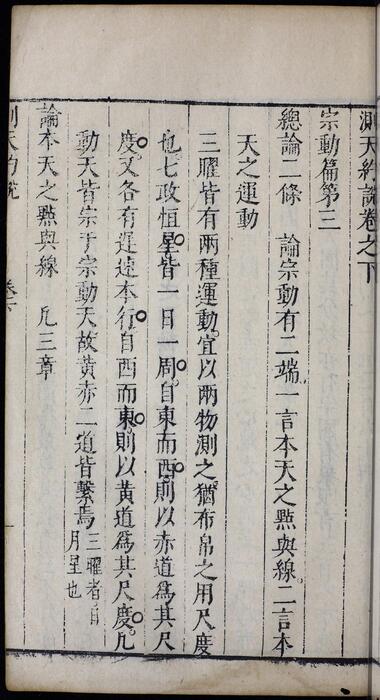 測天約說卷之下
宗動篇第三
總論二條 論宗動有二端一言本天之㸃與線二言本
天之運動
三曜皆有兩種運動宜以兩物測之猶布帛之用尺度
也七政恒星皆一日一周自東而西則以赤道爲其尺
度又各有遲速本行自西而東則以黄道爲其尺度凡
動天皆宗于宗動天故黄赤二道皆繫焉三曜者日
月星也
論本天之㸃與線 凡三章